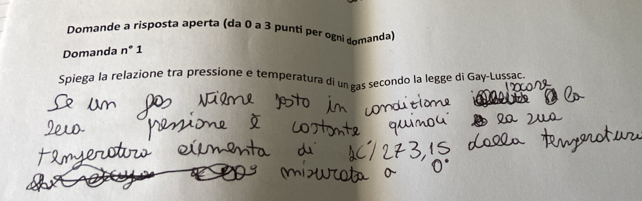 Domande a risposta aperta (da 0 a 3 punti per ogni domanda)
Domanda n° 1
Spiega la relazione tra pressione e temperatura di un gas secondo la legge di Gay-Lussac.
Se un gas viene posto in condizione isocora la
sua pressione è costante quindi la sua
temperatura aumenta di 1/273,15 dalla temperatura
misurata a 0°